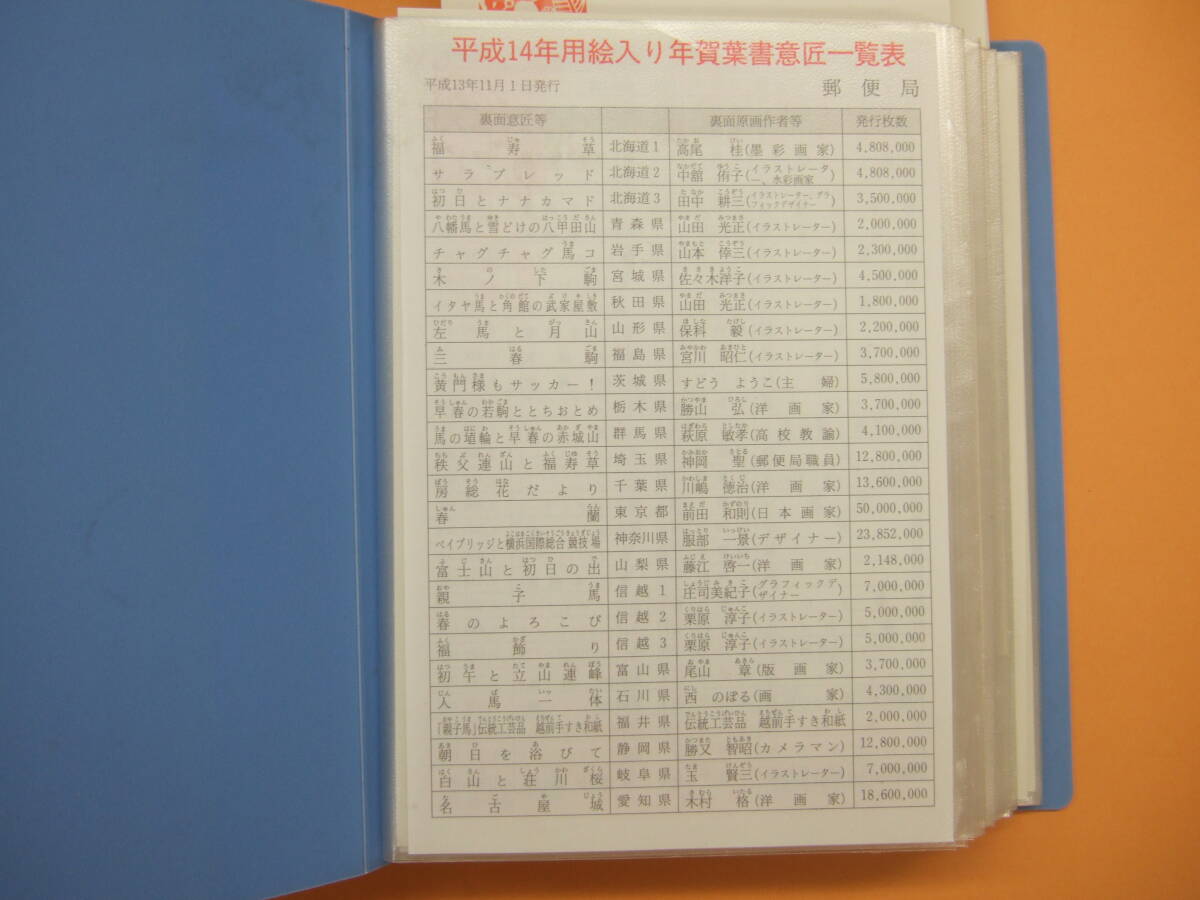 平成14年用絵入り年賀葉書意匠一覧表
平成13年11月1日発行 郵便局
裏面意匠等 裏面原画作者等 発行枚数
福寿草 北海道1 高尾 桂(墨彩画家) 4,808,000
サラブレッド 北海道2 中舘 侑子(イラストレーター、水彩画家 4,808,000
初日とナナカマド 北海道3 田中 耕三(イラストレーター、グラフィックデザイナー 3,500,000
八幡馬と雪どけの八甲田山 青森県 山田 光正(イラストレーター) 2,000,000
チャグチャグ馬コ 岩手県 山本 倖三(イラストレーター) 2,300,000
木ノ下駒 宮城県 佐々木洋子(イラストレーター) 4,500,000
イタヤ馬と角館の武家屋敷 秋田県 山田 光正(イラストレーター) 1,800,000
左馬と月山 山形県 保科 毅(イラストレーター) 2,200,000
三春駒 福島県 宮川 昭仁(イラストレーター) 3,700,000
黄門様もサッカー! 茨城県 すどう ようこ(主婦) 5,800,000
早春の若駒ととちおとめ 栃木県 勝山 弘(洋画家) 3,700,000
馬の埴輪と早春の赤城山 群馬県 萩原 敏孝(高校教諭) 4,100,000
秩父連山と福寿草 埼玉県 神岡 聖(郵便局職員) 12,800,000
房総花だより 千葉県 川嶋 徳治(洋画家) 13,600,000
春蘭 東京都 前田 和則(日本画家) 50,000,000
ベイブリッジと横浜国際総合競技場 神奈川県 服部 一景(デザイナー) 23,852,000
富士山と初日の出 山梨県 藤江 啓一(洋画家) 2,148,000
親子馬 信越1 庄司美紀子(グラフィックデザイナー 7,000,000
春のよろこび 信越2 栗原 淳子(イラストレーター) 5,000,000
福飾り 信越3 栗原 淳子(イラストレーター) 5,000,000
初午と立山連峰 富山県 尾山 章(版画家) 3,700,000
人馬一体 石川県 西 のぼる(画家) 4,300,000
「親子馬」伝統工芸品 越前手すき和紙 福井県 伝統工芸品 越前手すき和紙 2,000,000
朝日を浴びて 静岡県 勝又 智昭(カメラマン) 12,800,000
白山と荘川桜 岐阜県 玉 賢三(イラストレーター) 7,000,000
名古屋城 愛知県 木村 格(洋画家) 18,600,000